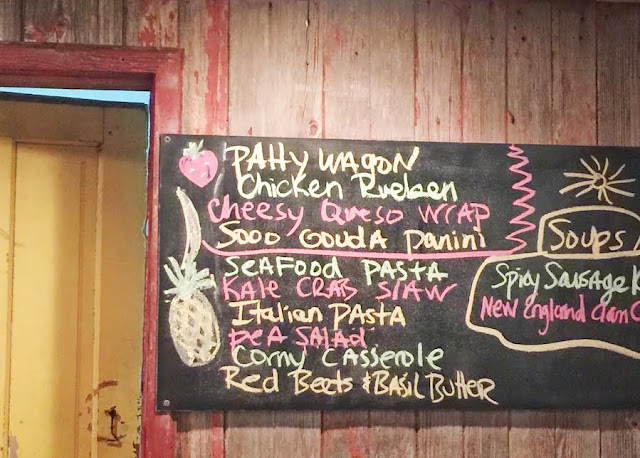 PAttY WAGON
Chicken Rueben
Cheesy Queso WRAP
Sooo GOUDA PANINI
SEAFOOD PASTA
KALE CRAB SLAW
Italian PAStA
PEA SALAD
Corny CASSEROLE
Red Beets & BASIL BUtteR
SOUPS
Spicy SAUSAGE K
New England clam C